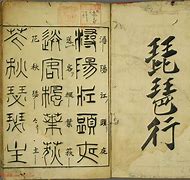 琵琶行
潯陽江頭夜
潯陽江頭夜
送客楓葉荻
送客楓葉荻
花秋瑟瑟主
花秋瑟瑟主